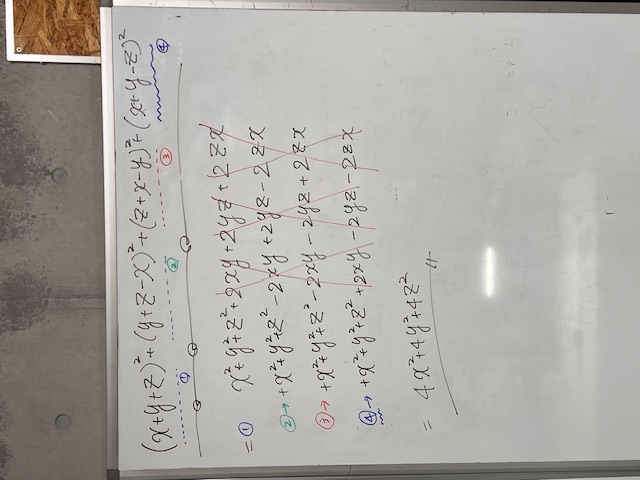 (x+y+z)²+(y+z-x)²+(z+x-y)²+(x+y-z)²
① ② ③ ④
=① x²+y²+z²+2xy+2yz+2zx
②→ +x²+y²+z²-2xy+2yz-2zx
③→ +x²+y²+z²-2xy-2yz+2zx
④→ +x²+y²+z²+2xy-2yz-2zx
= 4x²+4y²+4z²